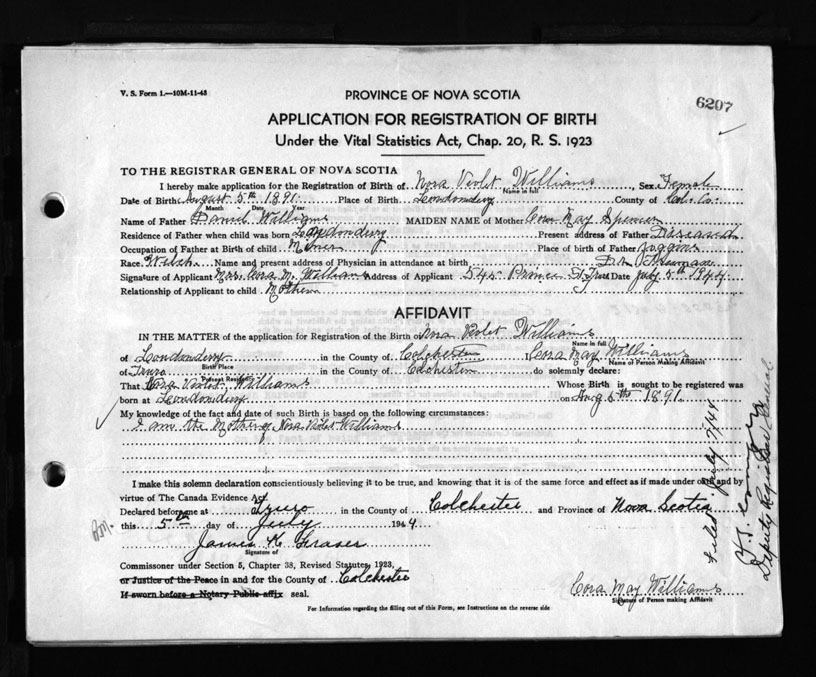 V. S. Form 1.—10M-11-43
PROVINCE OF NOVA SCOTIA
6207
APPLICATION FOR REGISTRATION OF BIRTH
Under the Vital Statistics Act, Chap. 20, R. S. 1923
TO THE REGISTRAR GENERAL OF NOVA SCOTIA
I hereby make application for the Registration of Birth of Nora Violet Williams, Sex Female
Name in full
Date of Birth August 5th 1891. Place of Birth Londonderry County of Col. Co.
Month Date Year
Name of Father Daniel Williams MAIDEN NAME of Mother Cora May Spencer
Residence of Father when child was born Londonderry Present address of Father Deceased
Occupation of Father at Birth of child Miner Place of birth of Father Joggins
Race Welsh Name and present address of Physician in attendance at birth Dr.
Signature of Applicant Mrs. Cora M. Williams Address of Applicant 545 Prince St Truro Date July 5th 1944
Relationship of Applicant to child Mother
AFFIDAVIT
IN THE MATTER of the application for Registration of the Birth of Nora Violet Williams
Name in full
of Londonderry in the County of Colchester I, Cora May Williams
Birth Place Name of Person Making Affidavit
of Truro in the County of Colchester do solemnly declare:
Present Residence
That Nora Violet Williams Whose Birth is sought to be registered was
born at Londonderry on Aug 5th 1891.
My knowledge of the fact and date of such Birth is based on the following circumstances:
I am the Mother of Nora Violet Williams
I make this solemn declaration conscientiously believing it to be true, and knowing that it is of the same force and effect as if made under oath and by
virtue of The Canada Evidence Act.
Declared before me at Truro in the County of Colchester and Province of Nova Scotia
this 5th day of July 1944
James K. Fraser
Signature of
Commissoner under Section 5, Chapter 38, Revised Statutes, 1923,
or Justice of the Peace in and for the County of Colchester
If sworn before a Notary Public affix seal.
Cora May Williams
Signature of Person making Affidavit
For Information regarding the filling out of this Form, see Instructions on the reverse side
Filed July 7/44
Deputy Registrar General